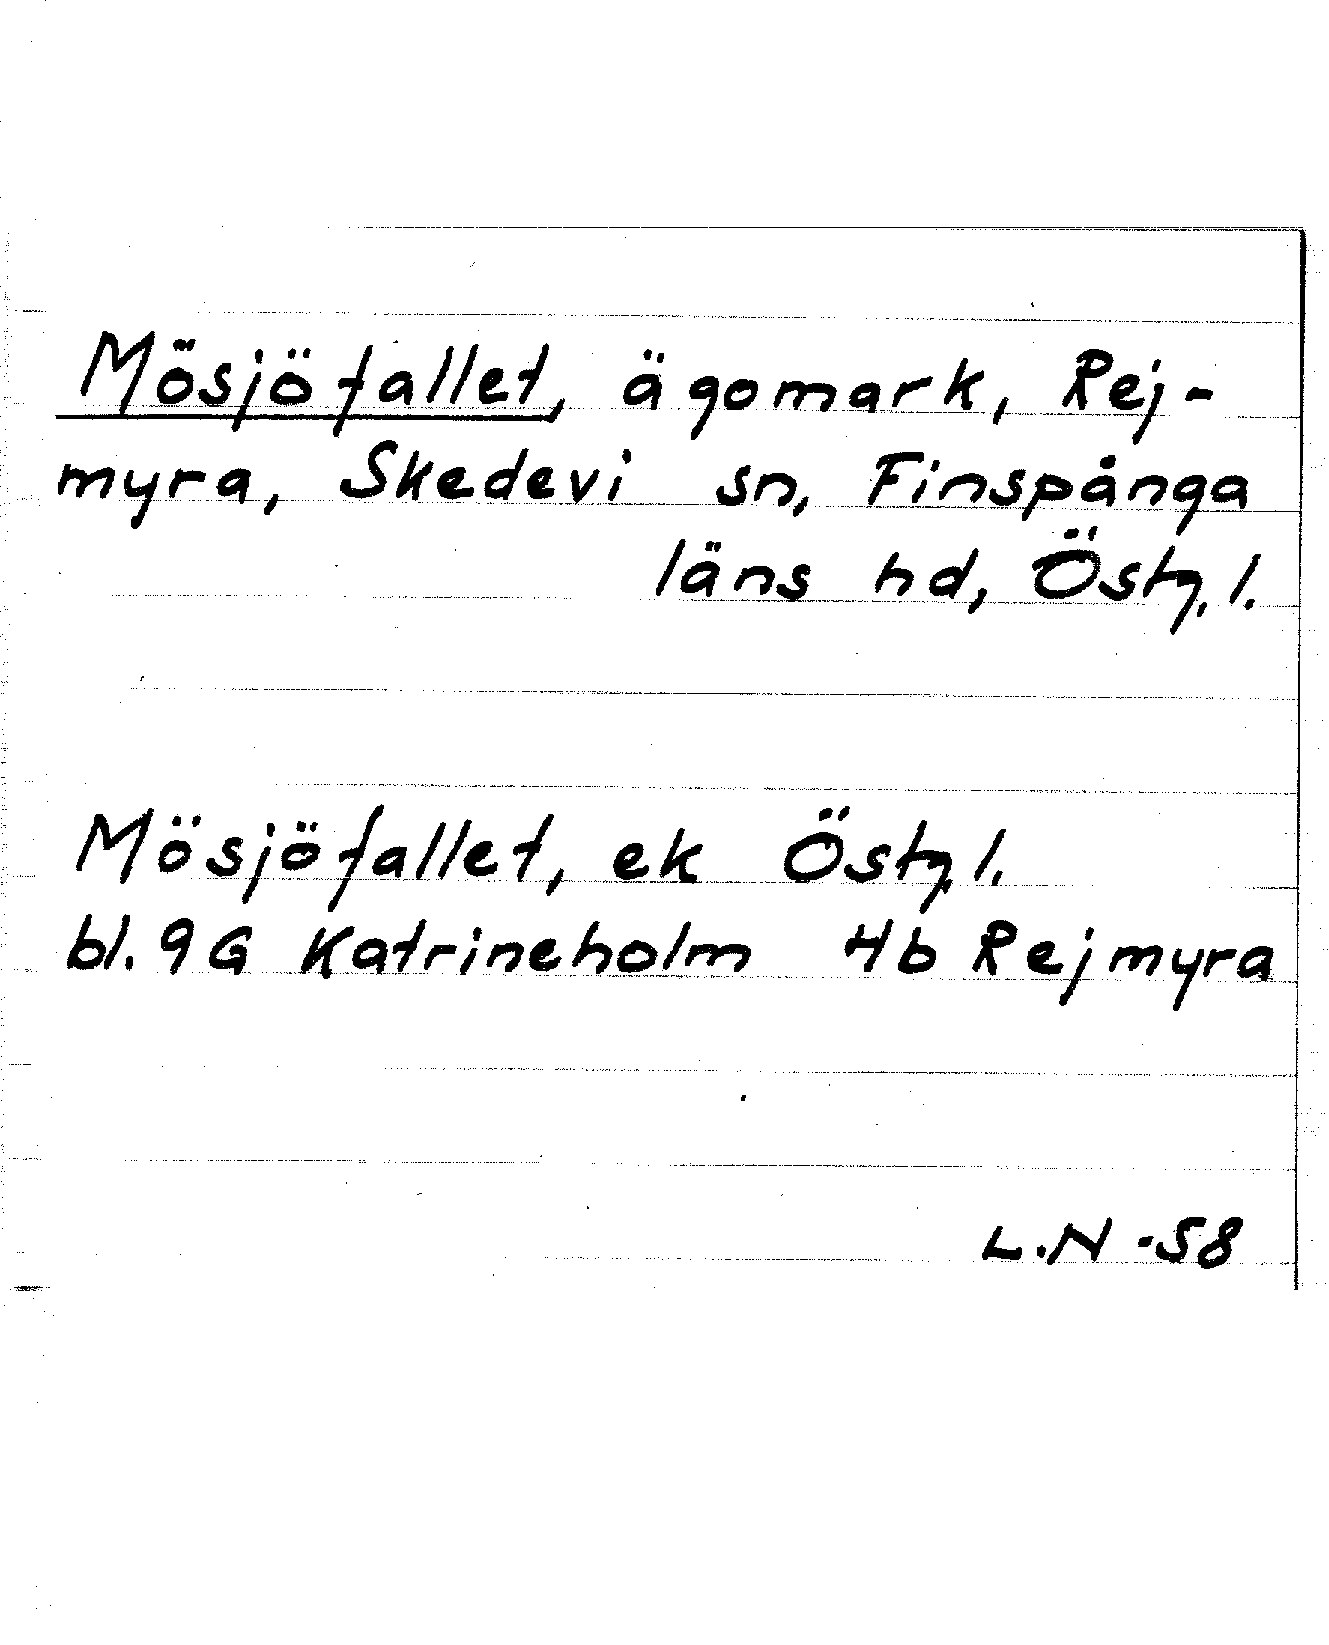 Mösjöfallet, ägomark, Rej-
myra, Skedevi sn, Finspånga
läns hd, Östg.l.
Mösjöfallet, ek Östg.l.
bl. 9G Katrineholm 4b Rejmyra
L.N -58